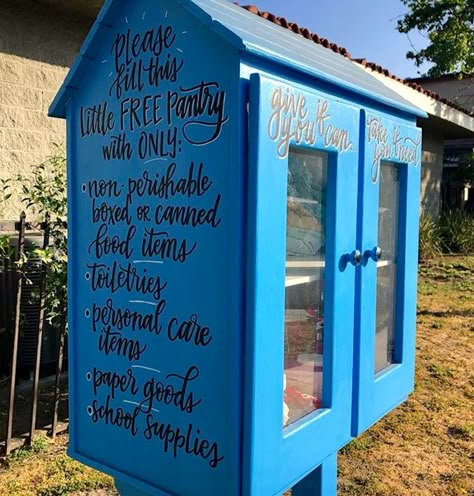 Please
fill this
Little FREE Pantry
with ONLY:
non-perishable
boxed or canned
food items
toiletries
personal care
items
paper goods
school supplies
give if
you can...
Take if
you need